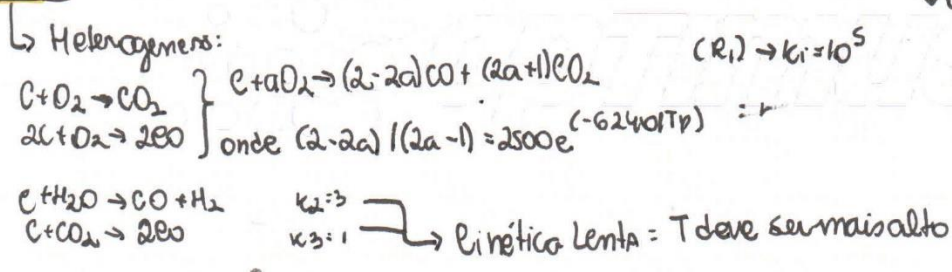 ↳ Heterogeneos: (R₁) → Ki = 10⁵
C+O₂ → CO₂ } C+aO₂ → (2-2a)CO + (2a+1)CO₂
2C+O₂ → 2CO } onde (2-2a)/(2a-1) = 2500e^(-6240/Tp) = r
C+H₂O → CO + H₂ K2=3
C+CO₂ → 2CO K3=1 → Cinética Lenta = T deve ser mais alto